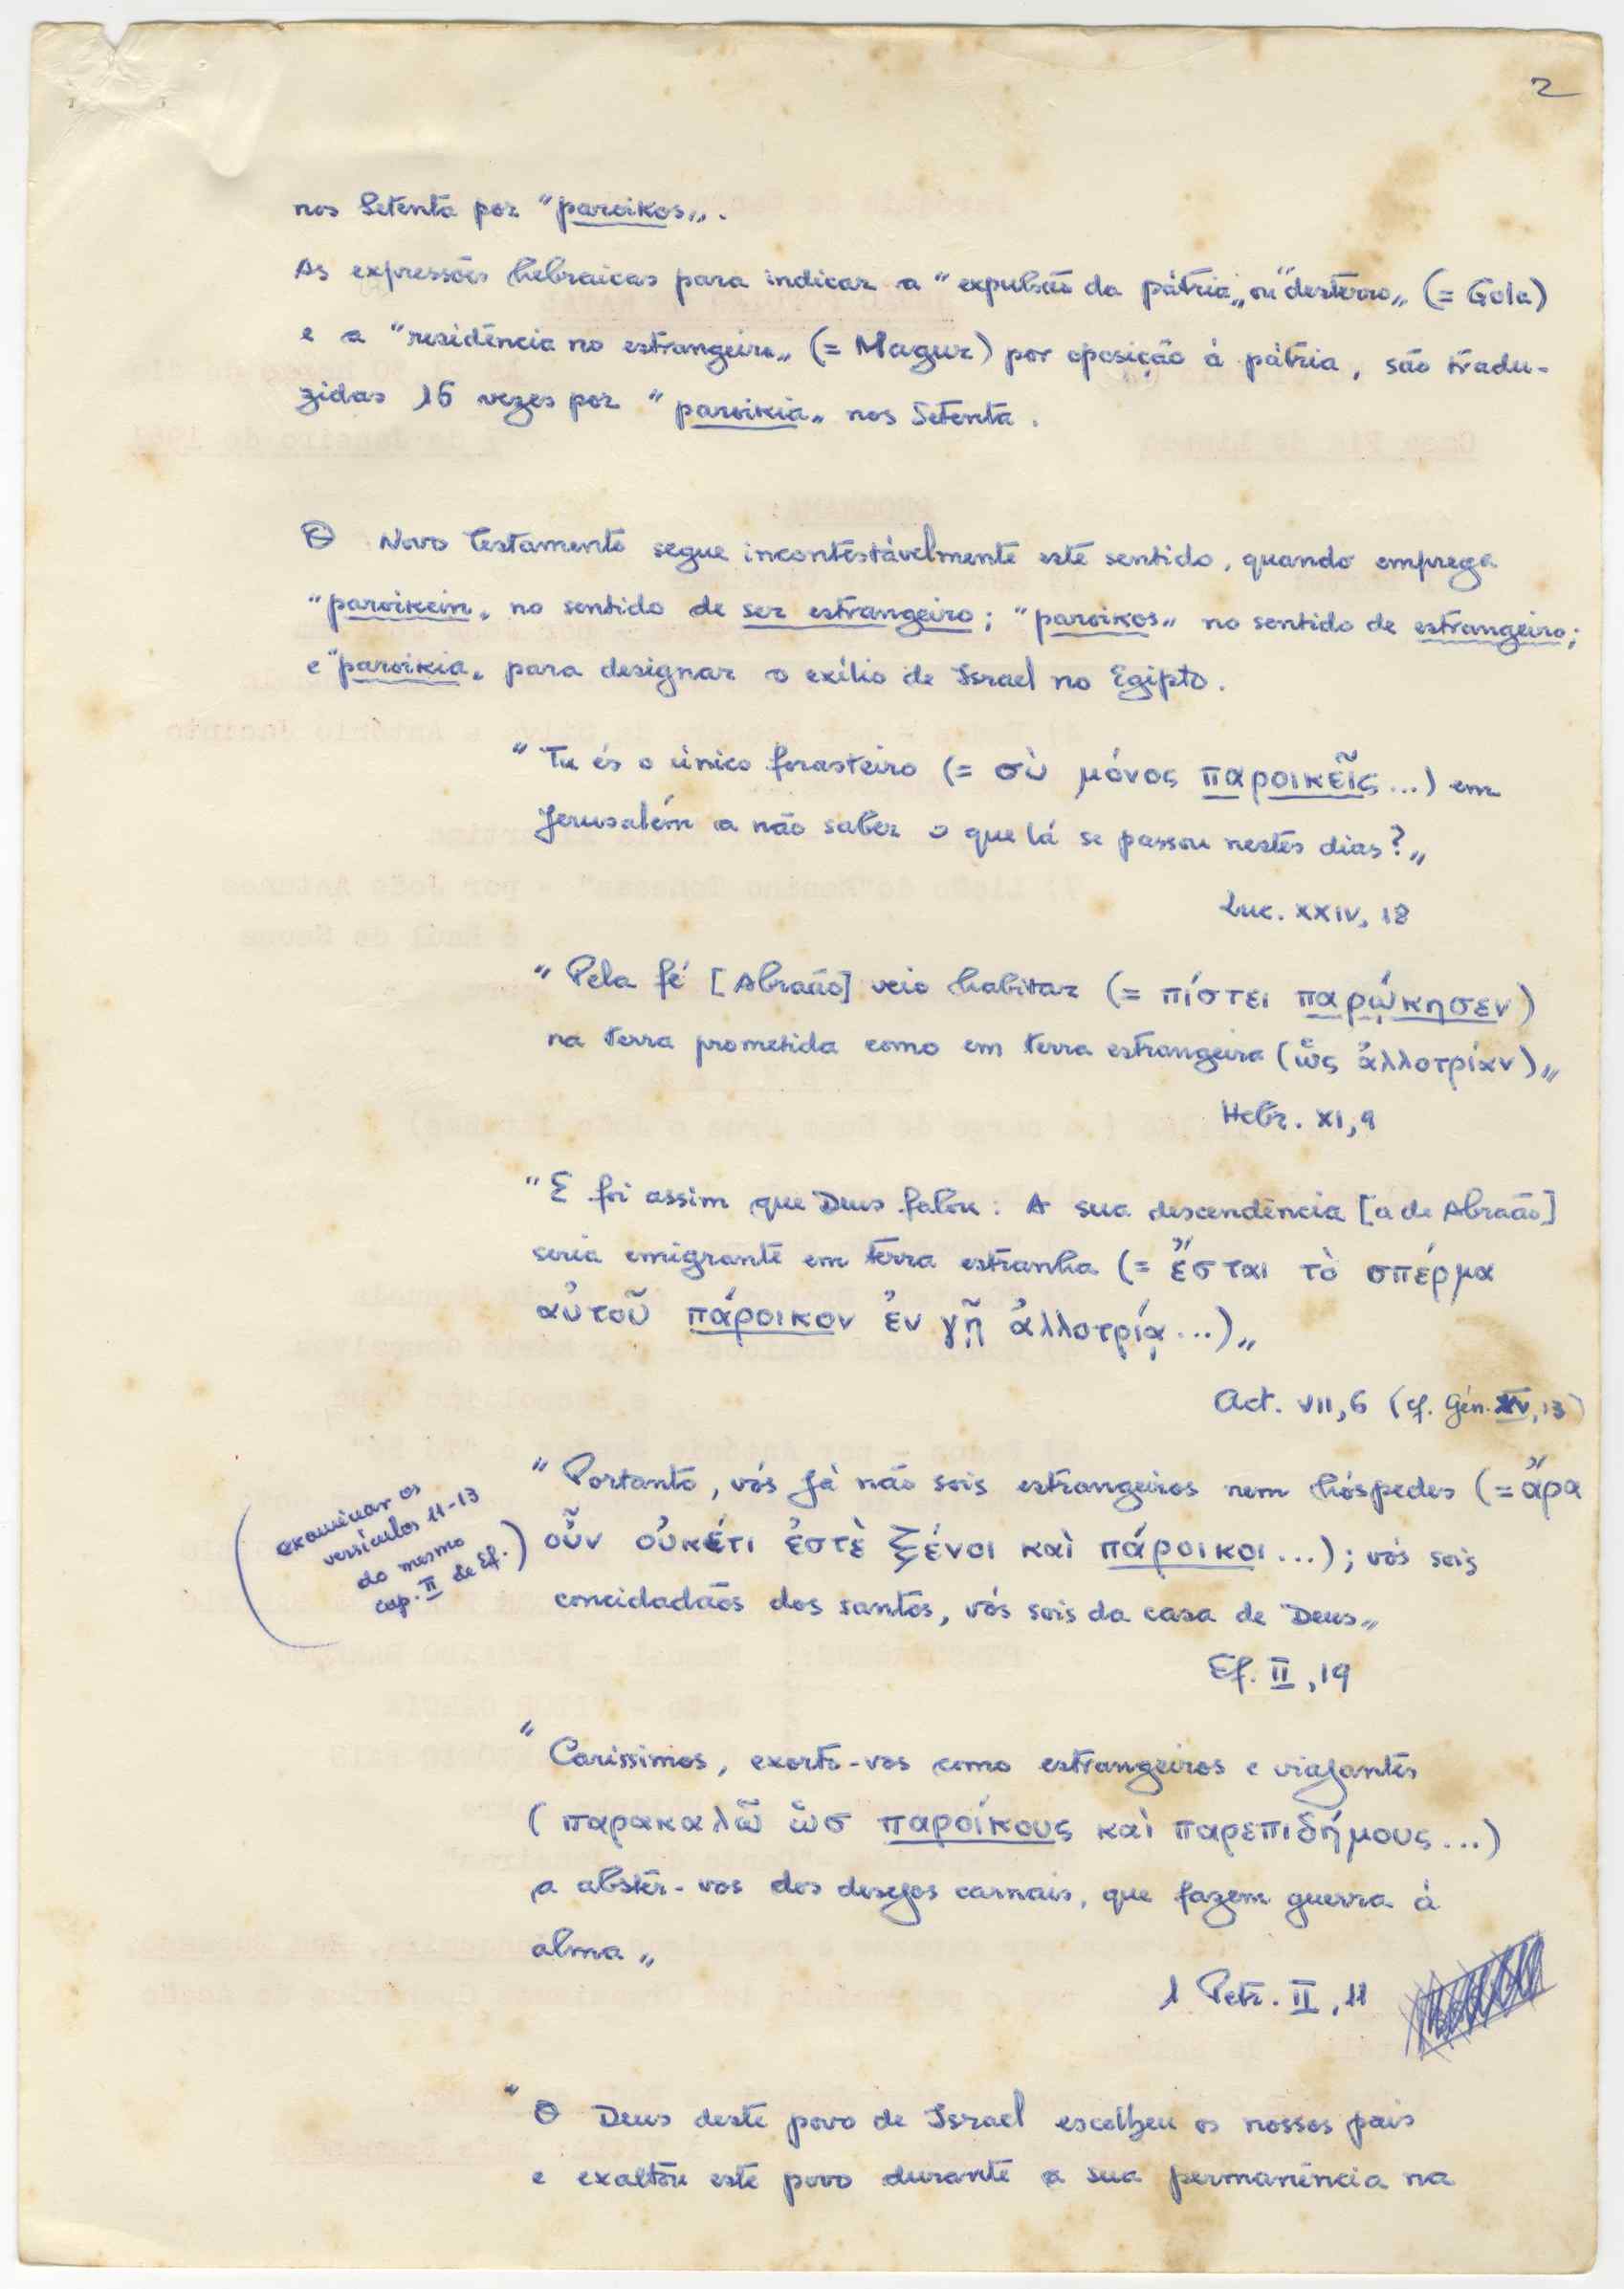 2
nos Setenta por "paroikos„.
As expressões hebraicas para indicar a "expulsão da pátria„ ou "desterro„ (= Gola)
e a "residência no estrangeiro„ (= Magur) por oposição à pátria, são tradu-
zidas 16 vezes por "paroikia„ nos Setenta.
O Novo Testamento segue incontestávelmente este sentido, quando emprega
"paroikein„ no sentido de ser estrangeiro; "paroikos„ no sentido de estrangeiro;
e "paroikia„ para designar o exílio de Israel no Egipto.
"Tu és o único forasteiro (= σὺ μόνος παροικεῖς...) em
Jerusalém a não saber o que lá se passou nestes dias?„
Luc. XXIV, 18
"Pela fé [Abraão] veio habitar (= πίστει παρῴκησεν)
na terra prometida como em terra estrangeira (ὡς ἀλλοτρίαν)„
Hebr. XI, 9
"E foi assim que Deus falou: A sua descendência [a de Abraão]
seria emigrante em terra estranha (= ἔσται τὸ σπέρμα
αὐτοῦ πάροικον ἐν γῇ ἀλλοτρίᾳ...)„
Act. VII, 6 (cf. Gén. XV, 13)
"Portanto, vós já não sois estrangeiros nem hóspedes (= ἄρα
οὖν οὐκέτι ἐστὲ ξένοι καὶ πάροικοι...); vós sois
concidadãos dos santos, vós sois da casa de Deus„
Ef. II, 19
(examinar os
versículos 11-13
do mesmo
cap. II de Ef.)
"Caríssimos, exorto-vos como estrangeiros e viajantes
(παρακαλῶ ὡσ παροίκους καὶ παρεπιδήμους...)
a abster-vos dos desejos carnais, que fazem guerra à
alma„
1 Petr. II, 11
"O Deus deste povo de Israel escolheu os nossos pais
e exaltou este povo durante a sua permanência na